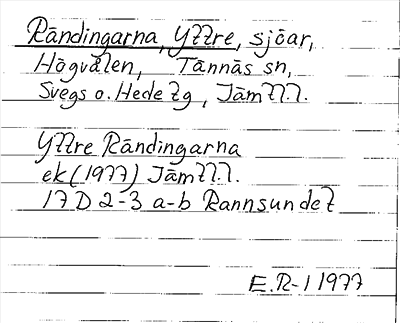 Rändingarna, Yttre, sjöar,
Högvålen, Tännäs sn,
Svegs o. Hede tg, Jämtl.l.
Yttre Rändingarna
ek (1977) Jämtl.l.
17 D 2-3 a-b Rannsundet
E.R-l 1977